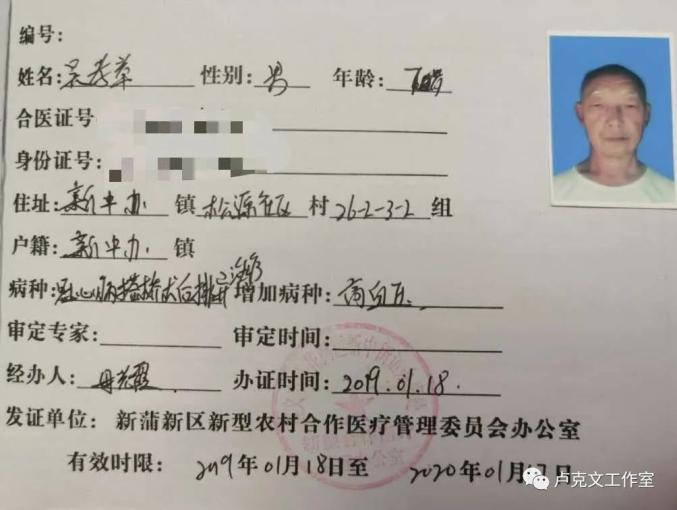 编号:
姓名: 性别:男 年龄:
合医证号
身份证号:
住址:新中办 镇 松源社区 村 26-2-3-2 组
户籍:新中办 镇
病种:冠心病搭桥术后 增加病种:高血压
审定专家: 审定时间:
经办人: 办证时间:2019.01.18.
发证单位:新蒲新区新型农村合作医疗管理委员会办公室
有效时限:2019年01月18日至 2020年01月17日
卢克文工作室